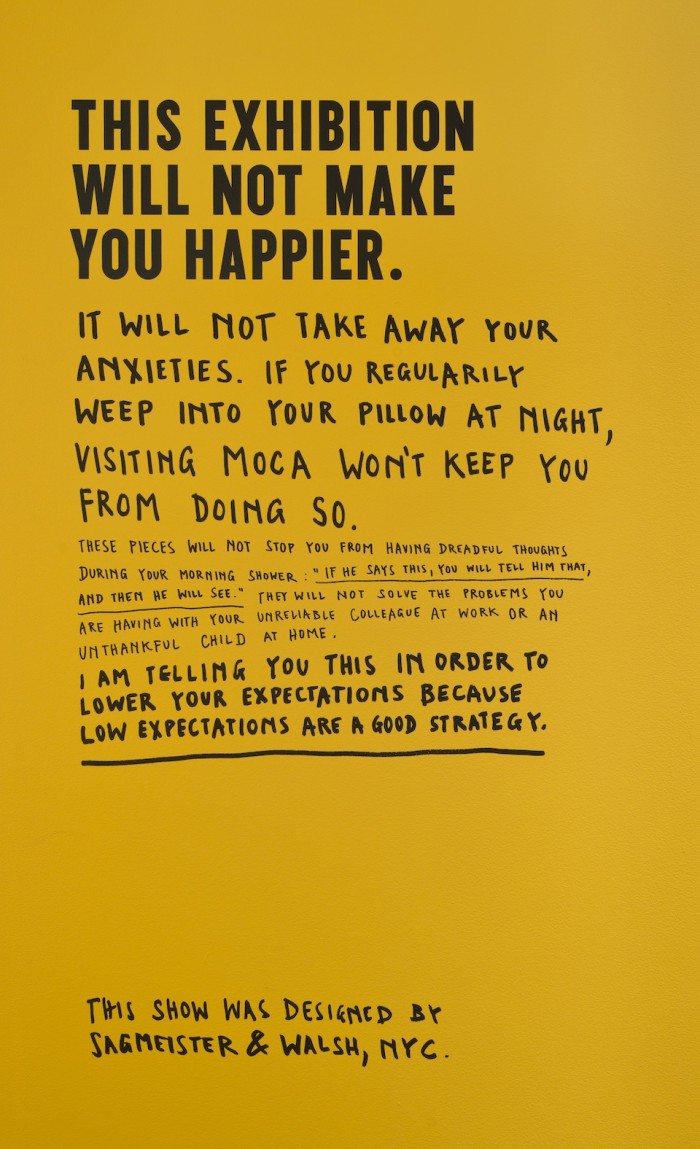 THIS EXHIBITION
WILL NOT MAKE
YOU HAPPIER.
IT WILL NOT TAKE AWAY YOUR
ANXIETIES. IF YOU REGULARILY
WEEP INTO YOUR PILLOW AT NIGHT,
VISITING MOCA WON'T KEEP YOU
FROM DOING SO.
THESE PIECES WILL NOT STOP YOU FROM HAVING DREADFUL THOUGHTS
DURING YOUR MORNING SHOWER: "IF HE SAYS THIS, YOU WILL TELL HIM THAT,
AND THEN HE WILL SEE." THEY WILL NOT SOLVE THE PROBLEMS YOU
ARE HAVING WITH YOUR UNRELIABLE COLLEAGUE AT WORK OR AN
UNTHANKFUL CHILD AT HOME.
I AM TELLING YOU THIS IN ORDER TO
LOWER YOUR EXPECTATIONS BECAUSE
LOW EXPECTATIONS ARE A GOOD STRATEGY.
THIS SHOW WAS DESIGNED BY
SAGMEISTER & WALSH, NYC.